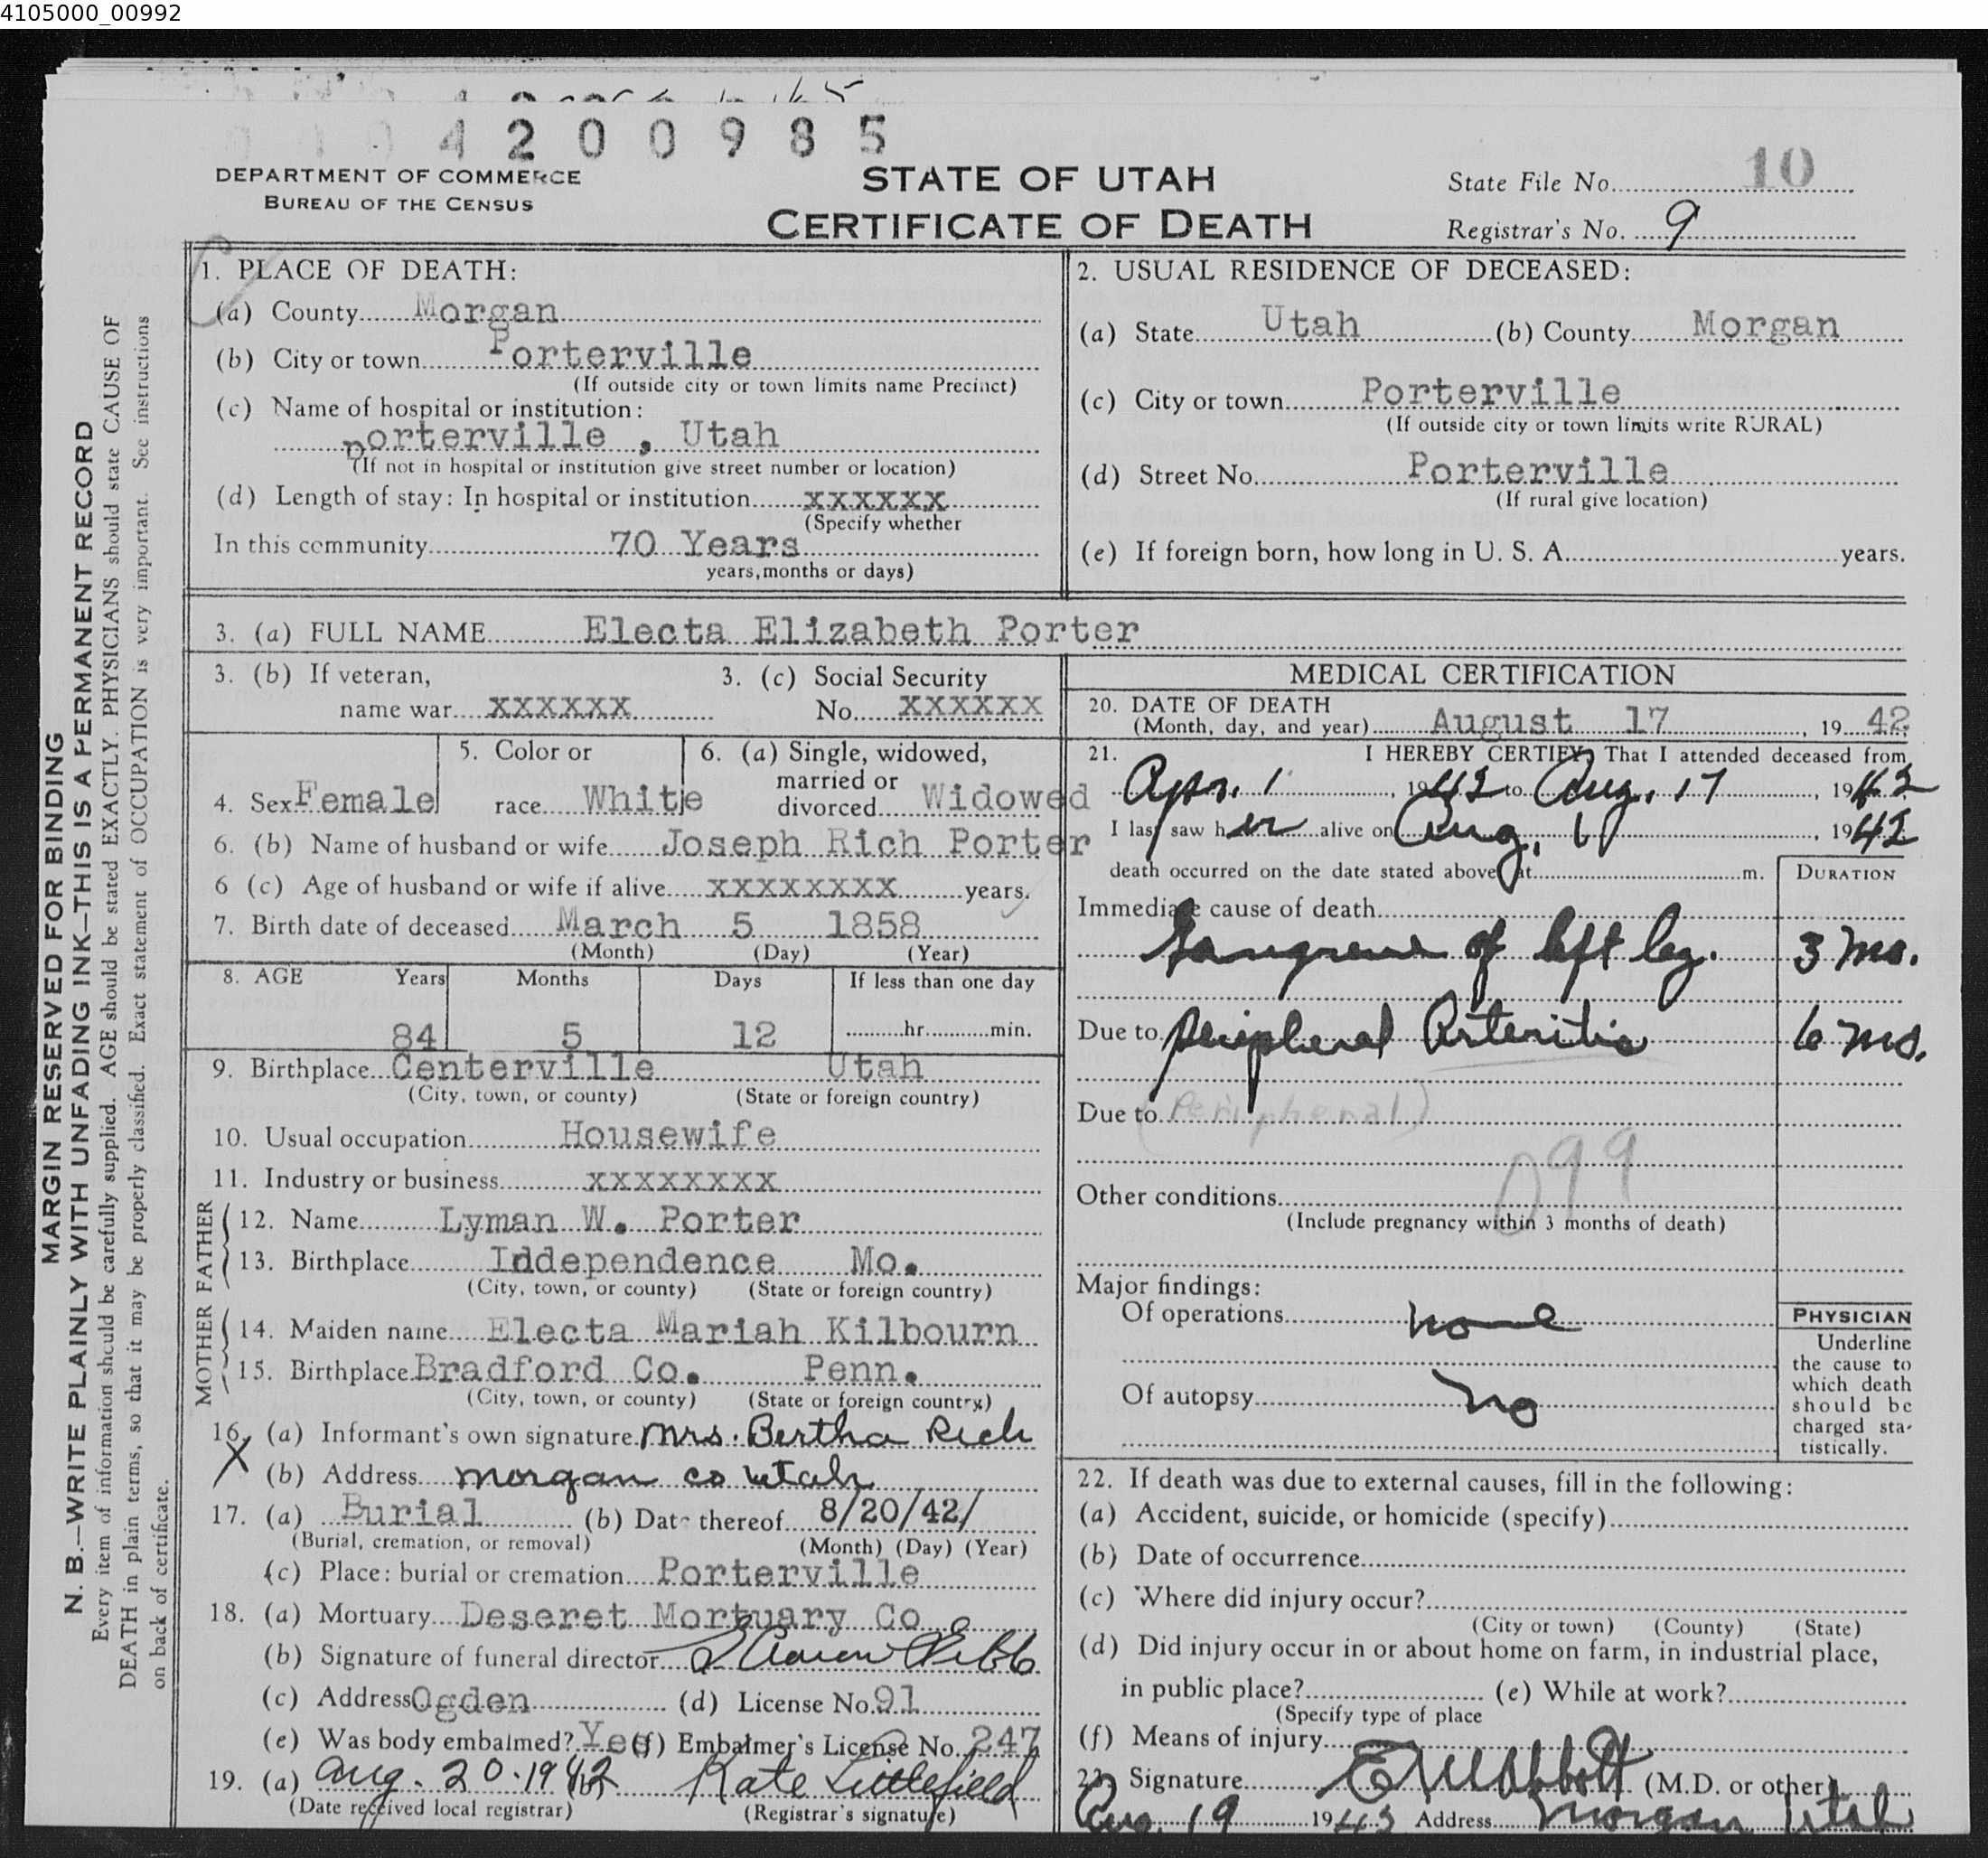 4105000_00992
4 2 0 0 9 8 5
DEPARTMENT OF COMMERCE
BUREAU OF THE CENSUS
STATE OF UTAH
CERTIFICATE OF DEATH
State File No. 10
Registrar's No. 9
MARGIN RESERVED FOR BINDING
N. B.—WRITE PLAINLY WITH UNFADING INK—THIS IS A PERMANENT RECORD
Every item of information should be carefully supplied. AGE should be stated EXACTLY. PHYSICIANS should state CAUSE OF
DEATH in plain terms, so that it may be properly classified. Exact statement of OCCUPATION is very important. See instructions
on back of certificate.
1. PLACE OF DEATH:
(a) County Morgan
(b) City or town Porterville
(If outside city or town limits name Precinct)
(c) Name of hospital or institution:
porterville , Utah
(If not in hospital or institution give street number or location)
(d) Length of stay: In hospital or institution xxxxxx
(Specify whether
In this community 70 Years
years, months or days)
2. USUAL RESIDENCE OF DECEASED:
(a) State Utah (b) County Morgan
(c) City or town Porterville
(If outside city or town limits write RURAL)
(d) Street No. Porterville
(If rural give location)
(e) If foreign born, how long in U. S. A. years.
3. (a) FULL NAME Electa Elizabeth Porter
3. (b) If veteran,
name war xxxxxx
3. (c) Social Security
No. xxxxxx
4. Sex Female
5. Color or
race White
6. (a) Single, widowed,
married or
divorced Widowed
6. (b) Name of husband or wife Joseph Rich Porter
6 (c) Age of husband or wife if alive xxxxxxxx years.
7. Birth date of deceased March 5 1858
(Month) (Day) (Year)
8. AGE Years Months Days If less than one day
84 5 12 hr. min.
9. Birthplace Centerville Utah
(City, town, or county) (State or foreign country)
10. Usual occupation Housewife
11. Industry or business xxxxxxxx
FATHER
12. Name Lyman W. Porter
13. Birthplace Inddependence Mo.
(City, town, or county) (State or foreign country)
MOTHER
14. Maiden name Electa Mariah Kilbourn
15. Birthplace Bradford Co. Penn.
(City, town, or county) (State or foreign country)
16. (a) Informant's own signature Mrs. Bertha Rich
X (b) Address morgan co utah
17. (a) Burial (b) Date thereof 8/20/42/
(Burial, cremation, or removal) (Month) (Day) (Year)
(c) Place: burial or cremation Porterville
18. (a) Mortuary Deseret Mortuary Co.
(b) Signature of funeral director
(c) Address Ogden (d) License No. 91
(e) Was body embalmed? Yes (f) Embalmer's License No. 247
19. (a) Aug. 20. 1942 (b) Kate Littlefield
(Date received local registrar) (Registrar's signature)
MEDICAL CERTIFICATION
20. DATE OF DEATH
(Month, day, and year) August 17, 19 42
21. I HEREBY CERTIFY, That I attended deceased from
Apr. 1, 1942 to Aug. 17, 1942
I last saw her alive on Aug. 16, 1942
death occurred on the date stated above at m.
DURATION
Immediate cause of death
Gangrene of left leg. 3 mo.
Due to Peripheral Arteritis 6 mo.
Due to (Peripheral)
099
Other conditions
(Include pregnancy within 3 months of death)
Major findings:
Of operations none
Of autopsy no
PHYSICIAN
Underline
the cause to
which death
should be
charged sta-
tistically.
22. If death was due to external causes, fill in the following:
(a) Accident, suicide, or homicide (specify)
(b) Date of occurrence
(c) Where did injury occur?
(City or town) (County) (State)
(d) Did injury occur in or about home on farm, in industrial place,
in public place? (e) While at work?
(Specify type of place
(f) Means of injury
23. Signature Abbott (M.D. or other)
Aug. 19 1943 Address Morgan Utah